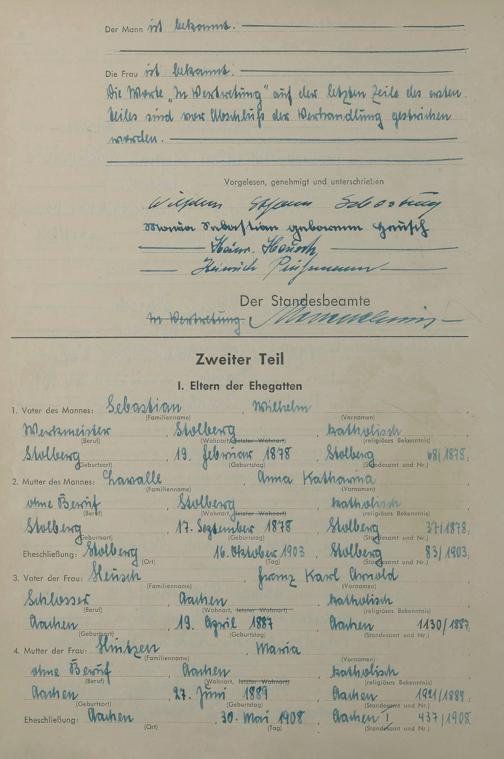 Der Mann ist bekannt.
Die Frau ist bekannt.
Die Worte „In Vertretung" auf der letzten Zeile des ersten
Teiles sind vor Abschluß der Verhandlung gestrichen
worden.
Vorgelesen, genehmigt und unterschrieben
Wilhelm Sebastian
Maria Sebastian geborene Heusch
Heinr. Heusch
Heinrich
Der Standesbeamte
In Vertretung
Zweiter Teil
I. Eltern der Ehegatten
1. Vater des Mannes: Sebastian, Wilhelm
(Familienname) (Vornamen)
Werkmeister, Stolberg, katholisch
(Beruf) (Wohnort, letzter Wohnort) (religiöses Bekenntnis)
Stolberg, 19. Februar 1878, Stolberg 68/1878.
(Geburtsort) (Geburtstag) (Standesamt und Nr.)
2. Mutter des Mannes: Lavalle, Anna Katharina
(Familienname) (Vornamen)
ohne Beruf, Stolberg, katholisch
(Beruf) (Wohnort, letzter Wohnort) (religiöses Bekenntnis)
Stolberg, 17. September 1878, Stolberg 371/1878.
(Geburtsort) (Geburtstag) (Standesamt und Nr.)
Eheschließung: Stolberg, 16. Oktober 1903, Stolberg 83/1903.
(Ort) (Tag) (Standesamt und Nr.)
3. Vater der Frau: Heusch, Franz Karl Arnold
(Familienname) (Vornamen)
Schlosser, Aachen, katholisch
(Beruf) (Wohnort, letzter Wohnort) (religiöses Bekenntnis)
Aachen, 19. April 1887, Aachen 1130/1887.
(Geburtsort) (Geburtstag) (Standesamt und Nr.)
4. Mutter der Frau: Hintzen, Maria
(Familienname) (Vornamen)
ohne Beruf, Aachen, katholisch
(Beruf) (Wohnort, letzter Wohnort) (religiöses Bekenntnis)
Aachen, 27. Juni 1889, Aachen 1921/1889.
(Geburtsort) (Geburtstag) (Standesamt und Nr.)
Eheschließung: Aachen, 30. Mai 1908, Aachen I 437/1908
(Ort) (Tag) (Standesamt und Nr.)